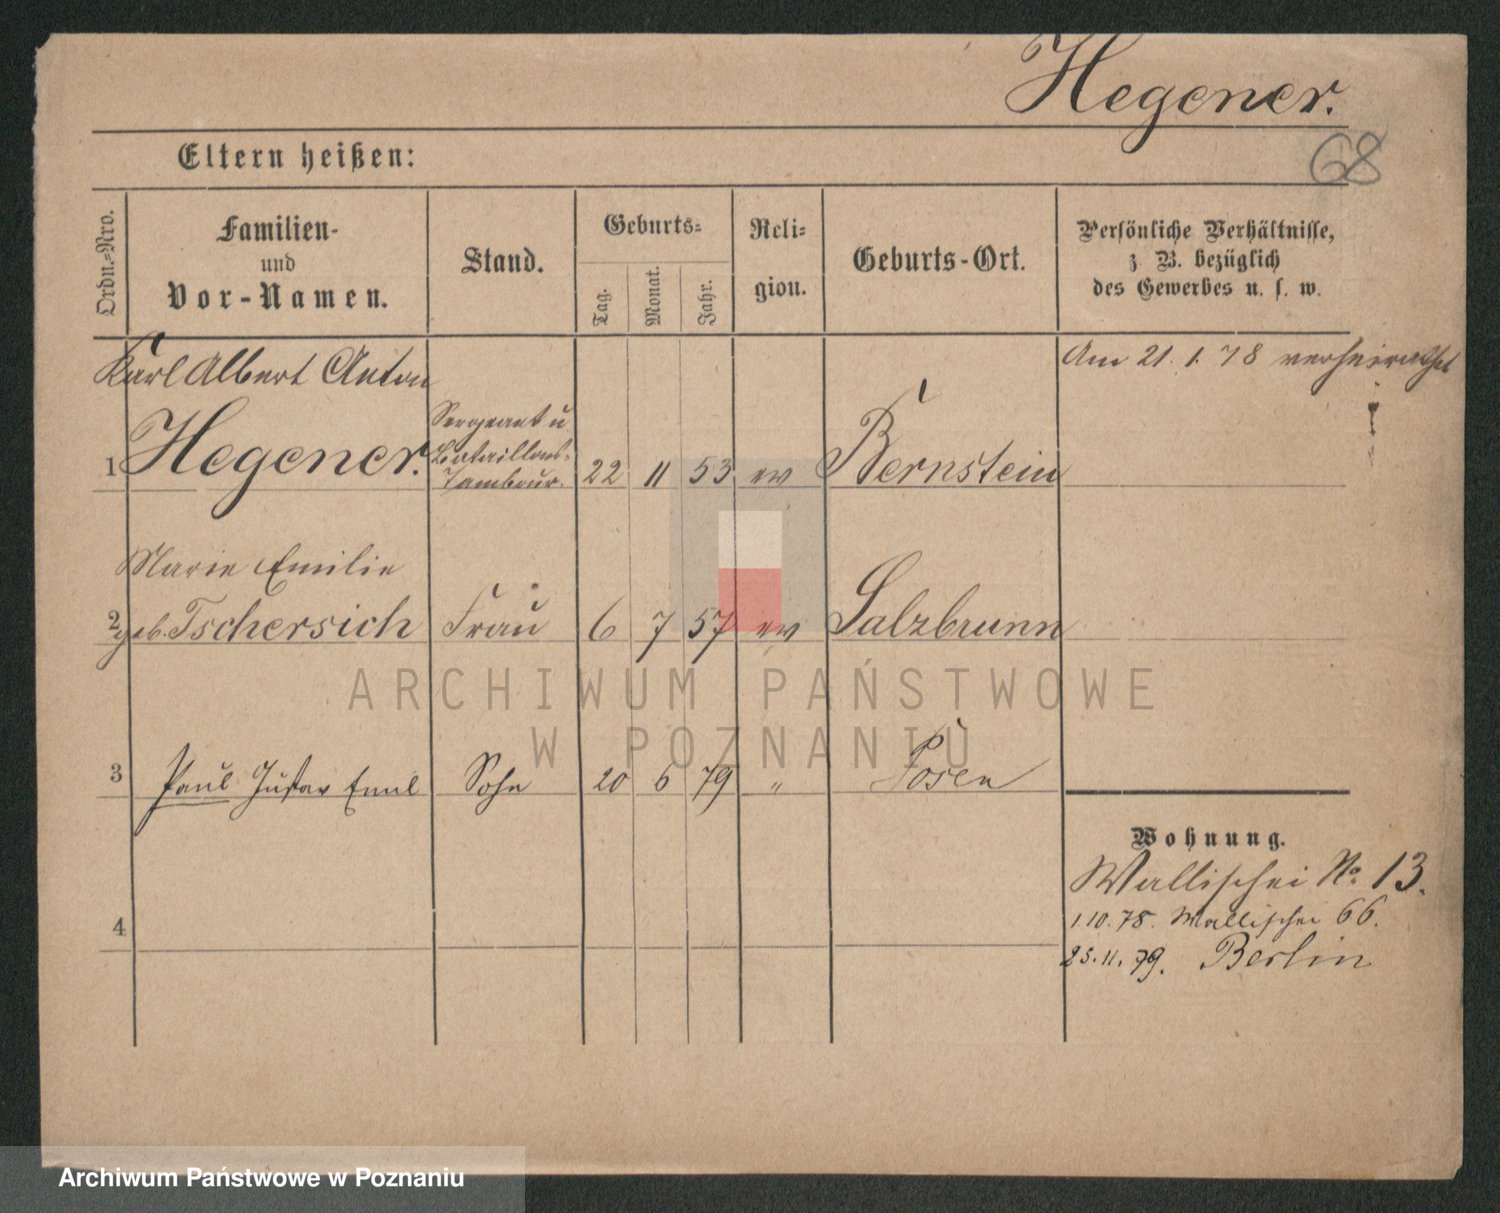 Hegener.
68
Eltern heißen:
Ordn.-Nro.
Familien-
und
Vor-Namen.
Stand.
Geburts-
Tag.
Monat.
Jahr.
Reli-
gion.
Geburts-Ort.
Persönliche Verhältnisse,
z B. bezüglich
des Gewerbes u. s. w.
Karl Albert Anton
Am 21. 1. 78 verheirathet
1 Hegener. Sergeant u Bataillons- Tambour. 22 11 53 ev Bernstein
Marie Emilie
2 geb. Tschersich Frau 6 7 57 ev Salzbrunn
3 Paul Gustav Emil Sohn 20 6 79 " Posen
4
Wohnung.
Wallischei No. 13.
1.10.78. Wallischei 66.
25.11.79. Berlin
ARCHIWUM PAŃSTWOWE
W POZNANIU
Archiwum Państwowe w Poznaniu